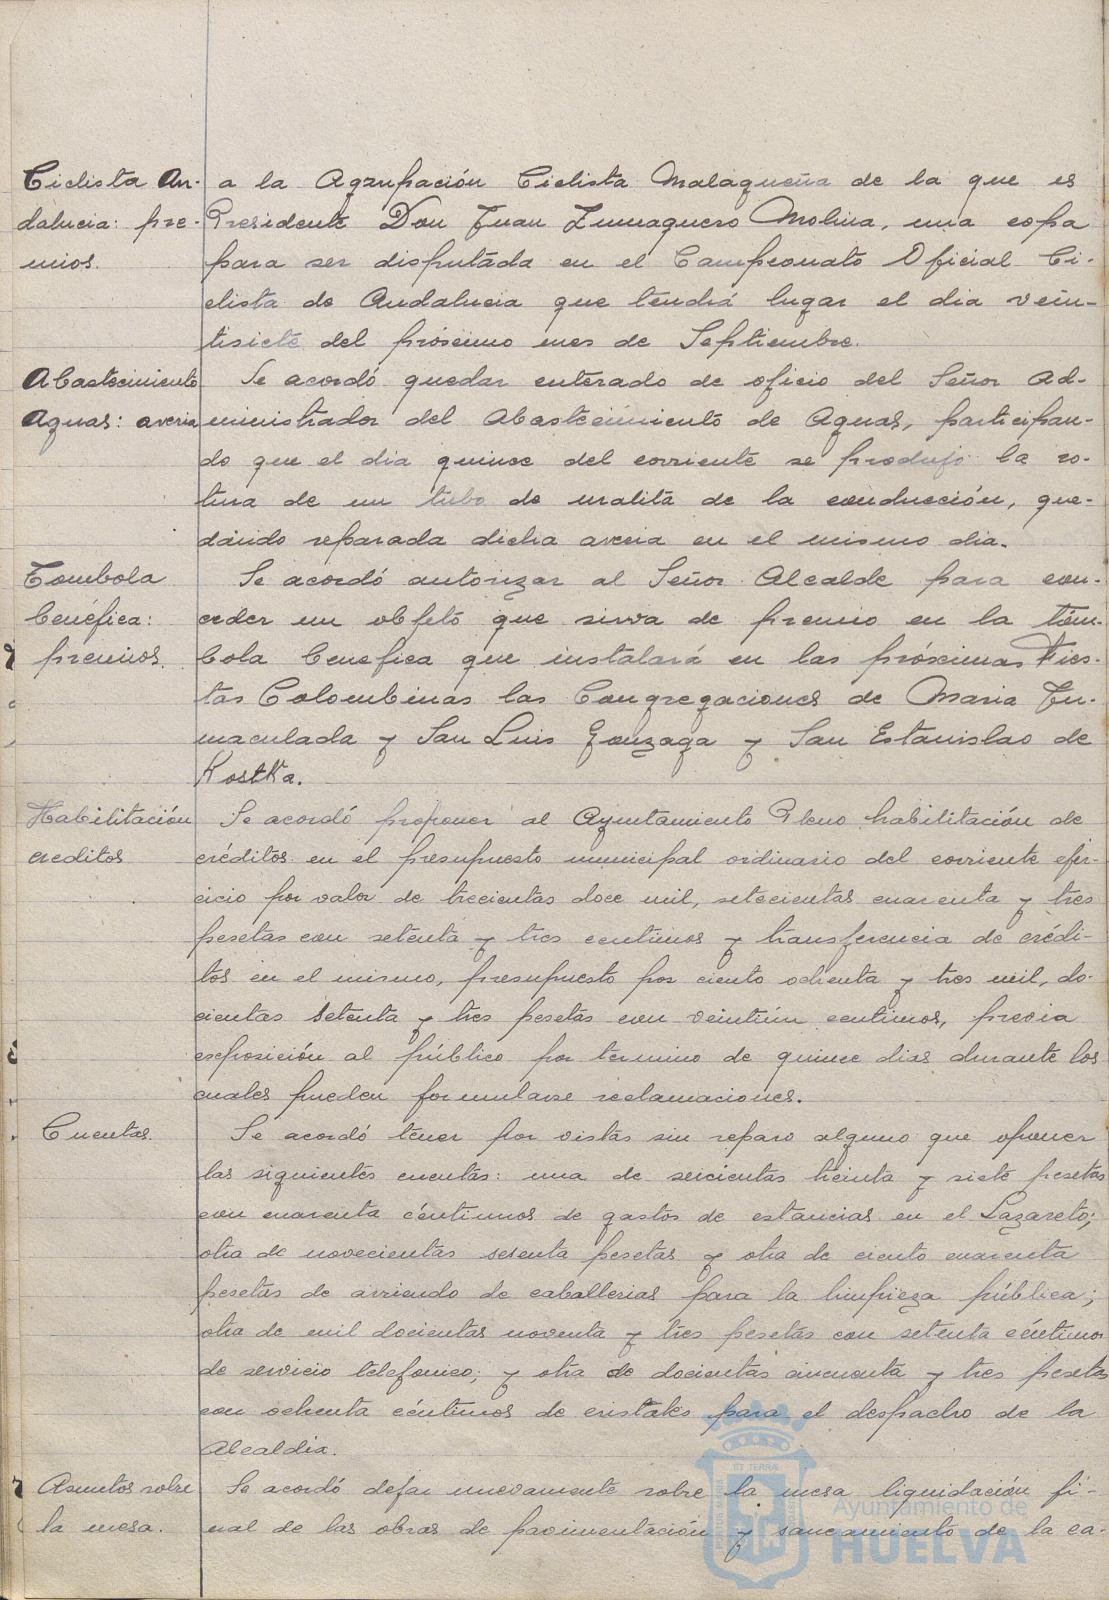 Ciclista An-
dalucia: pre-
mios.
a la Agrupación Ciclista Malagueña de la que es
Presidente Don Juan Zumaquero Molina, una copa
para ser disputada en el Campeonato Oficial Ci-
clista de Andalucia que tendrá lugar el dia vein-
tisiete del próximo mes de Septiembre.
Abastecimiento
Aguas: averia
Se acordó quedar enterado de oficio del Señor Ad-
ministrador del Abastecimiento de Aguas, participan-
do que el dia quince del corriente se produjo la ro-
tura de un tubo de uralita de la conducción, que-
dando reparada dicha averia en el mismo dia.
Tombola
benéfica:
premios.
Se acordó autorizar al Señor Alcalde para con-
ceder un objeto que sirva de premio en la Tóm-
bola Benefica que instalará en las próximas Fies-
tas Colombinas las Congregaciones de Maria In-
maculada y San Luis Gonzaga y San Estanislao de
Kostka.
Habilitación
creditos
Se acordó proponer al Ayuntamiento Pleno habilitación de
créditos en el presupuesto municipal ordinario del corriente ejer-
cicio por valor de trecientas doce mil, setecientas cuarenta y tres
pesetas con setenta y tres centimos y transferencia de crédi-
tos en el mismo, presupuesto por ciento ochenta y tres mil, do-
cientas setenta y tres pesetas con veintiún centimos, previa
exposición al público por termino de quince dias durante los
cuales pueden formularse reclamaciones.
Cuentas.
Se acordó tener por vistas sin reparo alguno que oponer
las siguientes cuentas: una de seicientas treinta y siete pesetas
con cuarenta céntimos de gastos de estancias en el Lazareto;
otra de novecientas sesenta pesetas y otra de ciento cuarenta
pesetas de arriendo de caballerias para la limpieza pública;
otra de mil docientas noventa y tres pesetas con setenta céntimos
de servicio telefonico; y otra de docientas cincuenta y tres pesetas
con ochenta céntimos de cristales para el despacho de la
Alcaldia.
Asuntos sobre
la mesa.
Se acordó dejar nuevamente sobre la mesa liquidación fi-
nal de las obras de pavimentación y saneamiento de la ca-
Ayuntamiento de
HUELVA